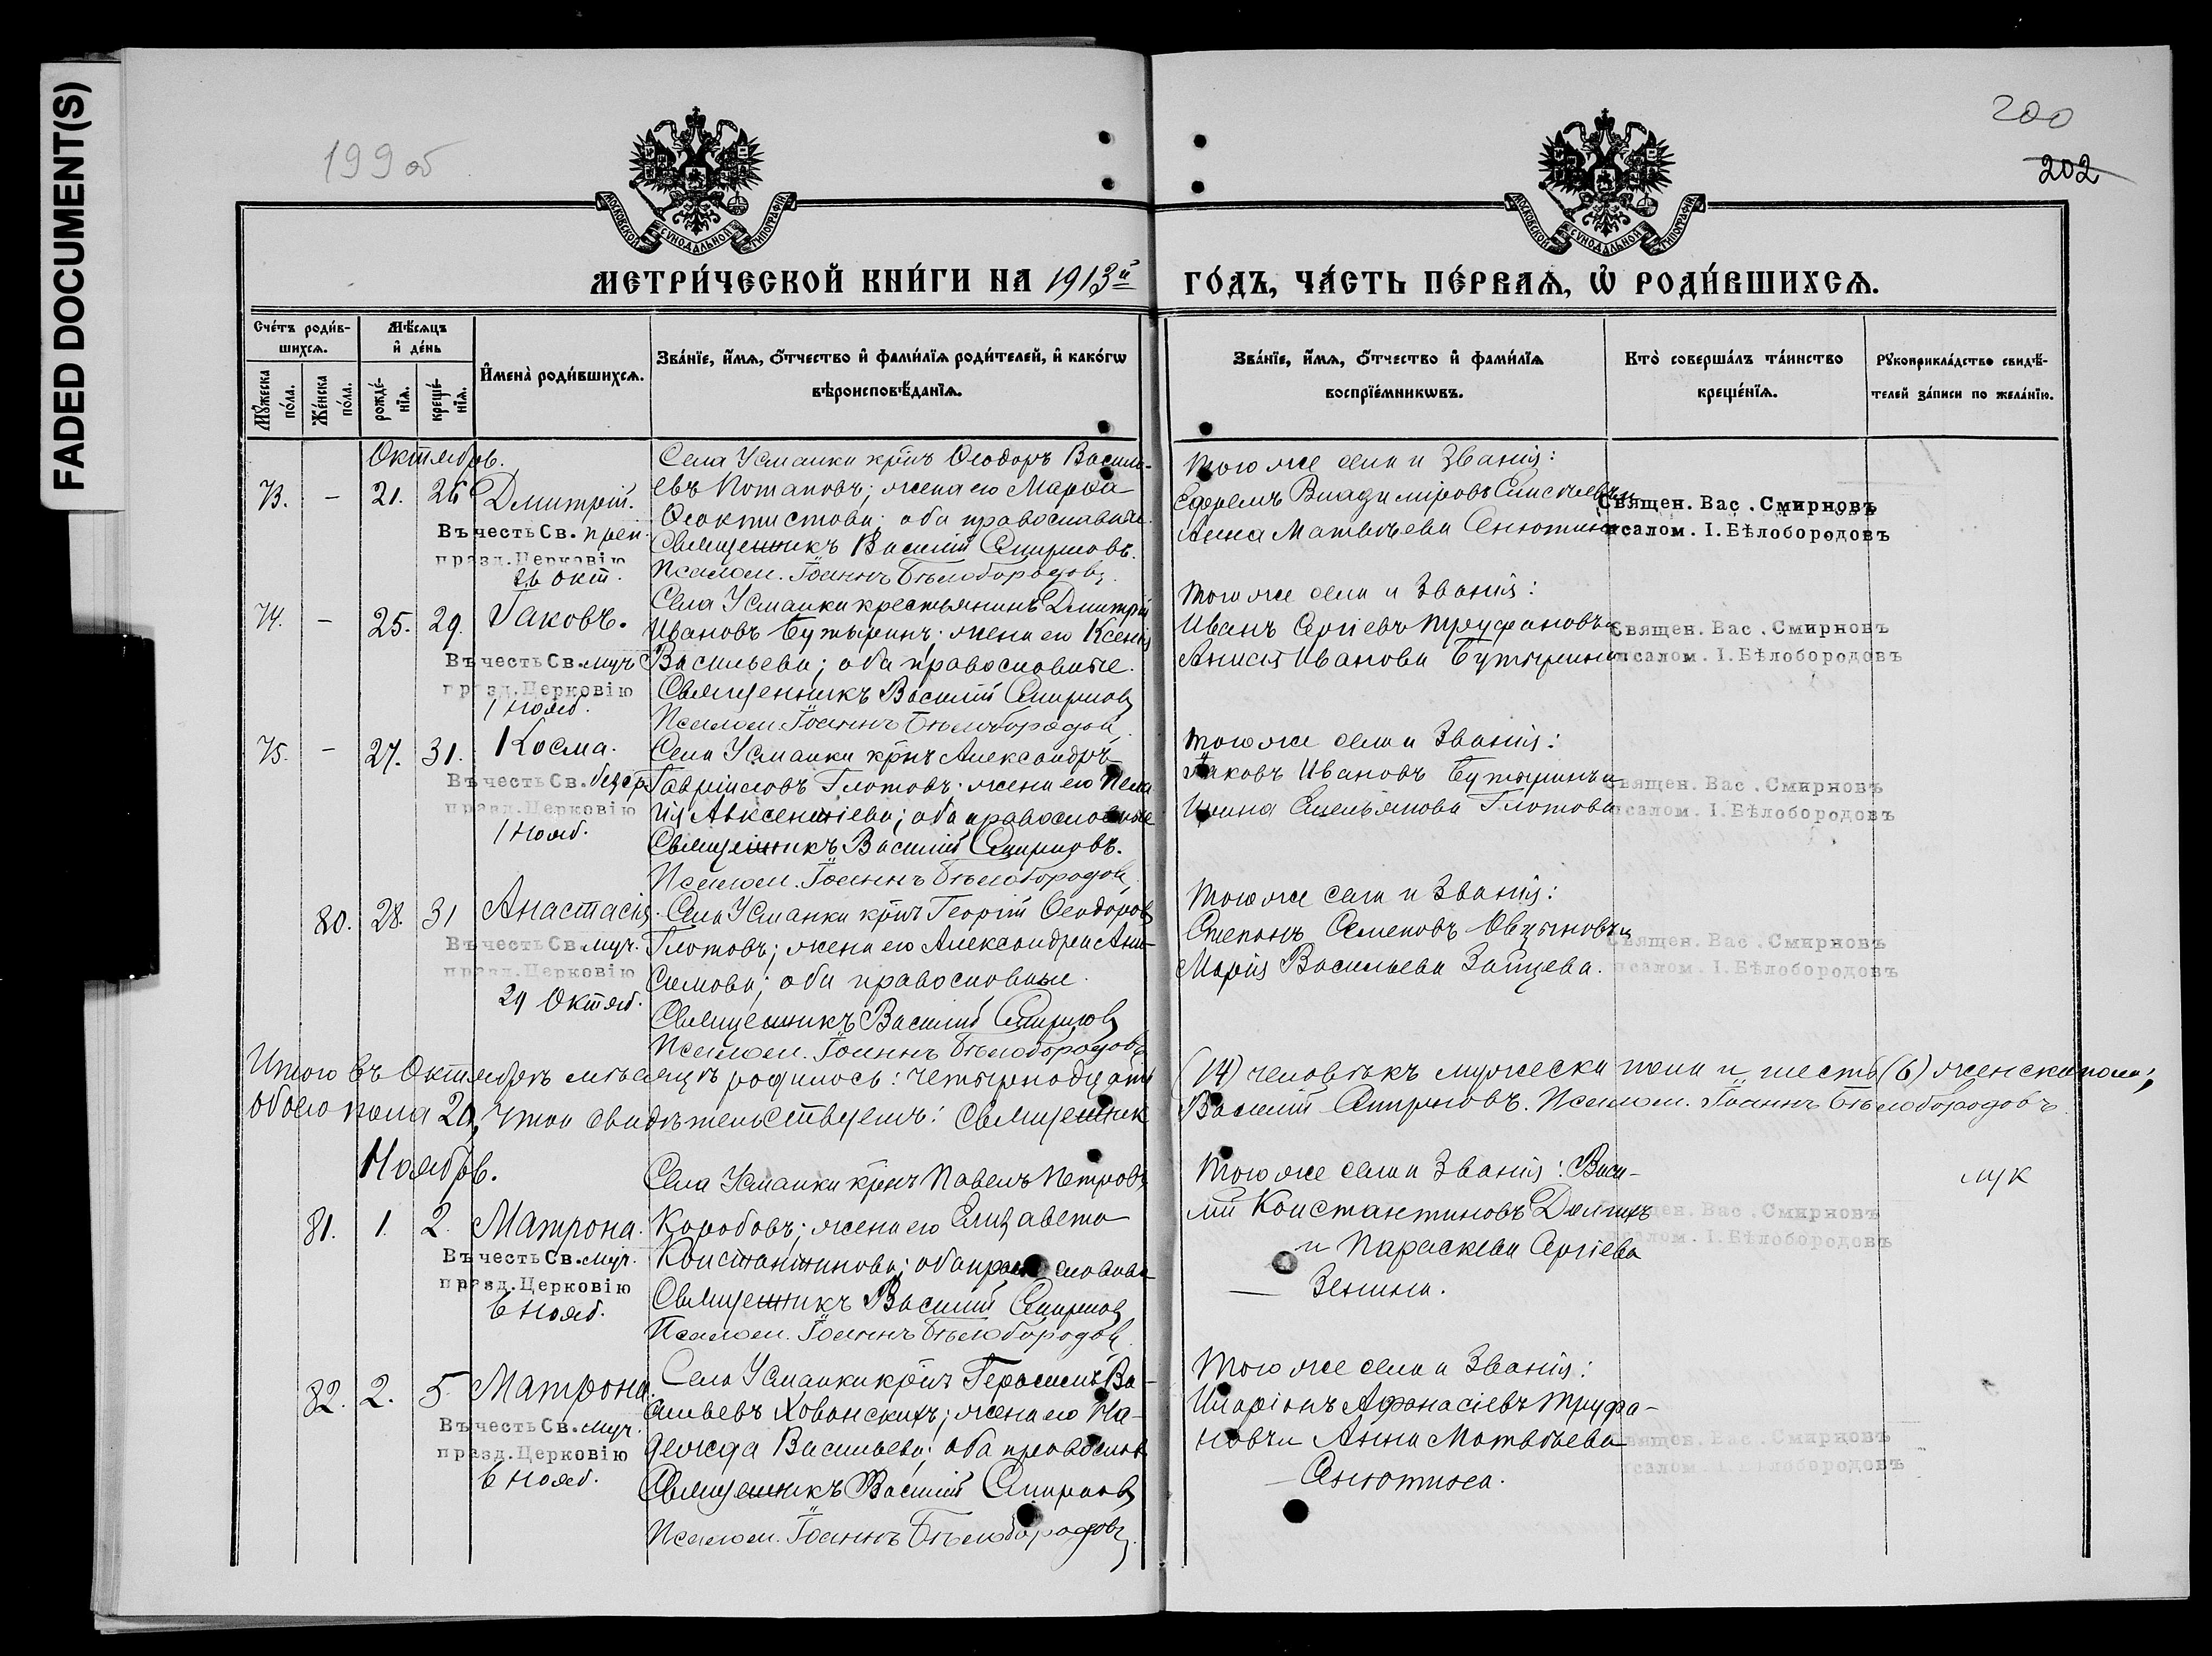 FADED DOCUMENT(S)
199 об
200
202
МОСКОВСКОЙ СѴНОДАЛЬНОЙ ТИПОГРАФІИ
МОСКОВСКОЙ СѴНОДАЛЬНОЙ ТИПОГРАФІИ
МЕТРИ́ЧЕСКОЙ КНИ́ГИ НА 1913й
ГО́ДЪ, ЧА́СТЬ ПЕ́РВАѦ, Ѽ РОДИ́ВШИХСѦ.
Сче́тъ роди́в-
шихсѧ.
Мꙋ́жеска по́ла.
Же́нска по́ла.
Мѣ́сяцъ
и҆ де́нь
рожде́-нїѧ.
креще́-нїѧ.
И҆мена̀ роди́вшихсѧ.
Зва́нїе, и҆́мѧ, о҆́тчество и҆ фами́лїѧ роди́телей, и҆ како́гѡ
вѣроисповѣ́данїѧ.
Зва́нїе, и҆́мѧ, о҆́тчество и҆ фами́лїѧ
воспрїе́мникѡвъ.
Кто̀ соверша́лъ та́инство
креще́нїѧ.
Рꙋкоприкла́дство свидѣ́-
телей за́писи по жела́нїю.
Октябрь.
73. – 21. 26 Дмитрій.
Въ честь Св. преп.
празд. Церковію
26 окт.
Села Усманки крнъ Ѳеодоръ Василь-
евъ Потаповъ; жена его Марѳа
Ѳеоктистова; оба православные.
Священникъ Василій Смирновъ.
Псалом. Іоаннъ Бѣлобородовъ.
Того же села и званія:
Ефремъ Владиміровъ
Анна Матвѣева Анютина
Священ. Вас. Смирновъ
псалом. І. Бѣлобородовъ
74. – 25. 29. Іаковъ.
Въ честь Св. муч
празд. Церковію
1 нояб.
Села Усманки крестьянинъ Дмитрій
Ивановъ Бутыринъ; жена его Ксенія
Васильева; оба православные.
Священникъ Василій Смирновъ
Псалом. Іоаннъ Бѣлобородовъ.
Того же села и званія:
Иванъ Сергіевъ Труфановъ и
Анисія Иванова Бутырина
Священ. Вас. Смирновъ
псалом. І. Бѣлобородовъ
75. – 27. 31. Косма.
Въ честь Св. безср.
празд. Церковію
1 нояб.
Села Усманки крнъ Александръ
Гавріиловъ Глотовъ; жена его Пела
гія Авксентіева; оба православные
Священникъ Василій Смирновъ.
Псалом. Іоаннъ Бѣлобородовъ
Того же села и званія:
Іаковъ Ивановъ Бутыринъ и
Ирина Емельянова Глотова
Священ. Вас. Смирновъ
псалом. І. Бѣлобородовъ
80. 28. 31 Анастасія.
Въ честь Св. муч.
празд. Церковію
29 Октяб.
Села Усманки крнъ Георгій Ѳеодоровъ
Глотовъ; жена его Александра Ани-
симова; оба православные.
Священникъ Василій Смирновъ
Псалом. Іоаннъ Бѣлобородовъ
Того же села и званія:
Степанъ Семеновъ Овцыновъ и
Марія Васильева Зайцева.
Священ. Вас. Смирновъ
псалом. І. Бѣлобородовъ
Итого въ Октябрѣ мѣсяцѣ родилось: четырнадцать (14) человѣкъ мужеска пола и шесть (6) женска пола;
обоего пола 20, что и свидѣтельствуемъ: Священник Василій Смирновъ. Псалом. Іоаннъ Бѣлобородовъ.
Ноябрь.
81. 1. 2. Матрона.
Въ честь Св. муч.
празд. Церковію
6 нояб.
Села Усманки крнъ Павелъ Петровъ
Коробовъ; жена его Елизавета
Константинова; оба
Священникъ Василій Смирновъ
Псалом. Іоаннъ Бѣлобородовъ
Того же села и званія: Васи-
лій Константиновъ Долгихъ
и Параскева Сергіева
Зенина.
Священ. Вас. Смирновъ
псалом. І. Бѣлобородовъ
82. 2. 5. Матрона.
Въ честь Св. муч.
празд. Церковію
6 нояб.
Села Усманки крнъ Герасимъ Ва-
сильевъ Хованскихъ; жена его На-
дежда Васильева; оба православ
Священникъ Василій Смирновъ
Псалом. Іоаннъ Бѣлобородовъ.
Того же села и званія:
Иларіонъ Аѳанасіевъ Труфа-
новъ и Анна Матвѣева
Анютина.
Священ. Вас. Смирновъ
псалом. І. Бѣлобородовъ